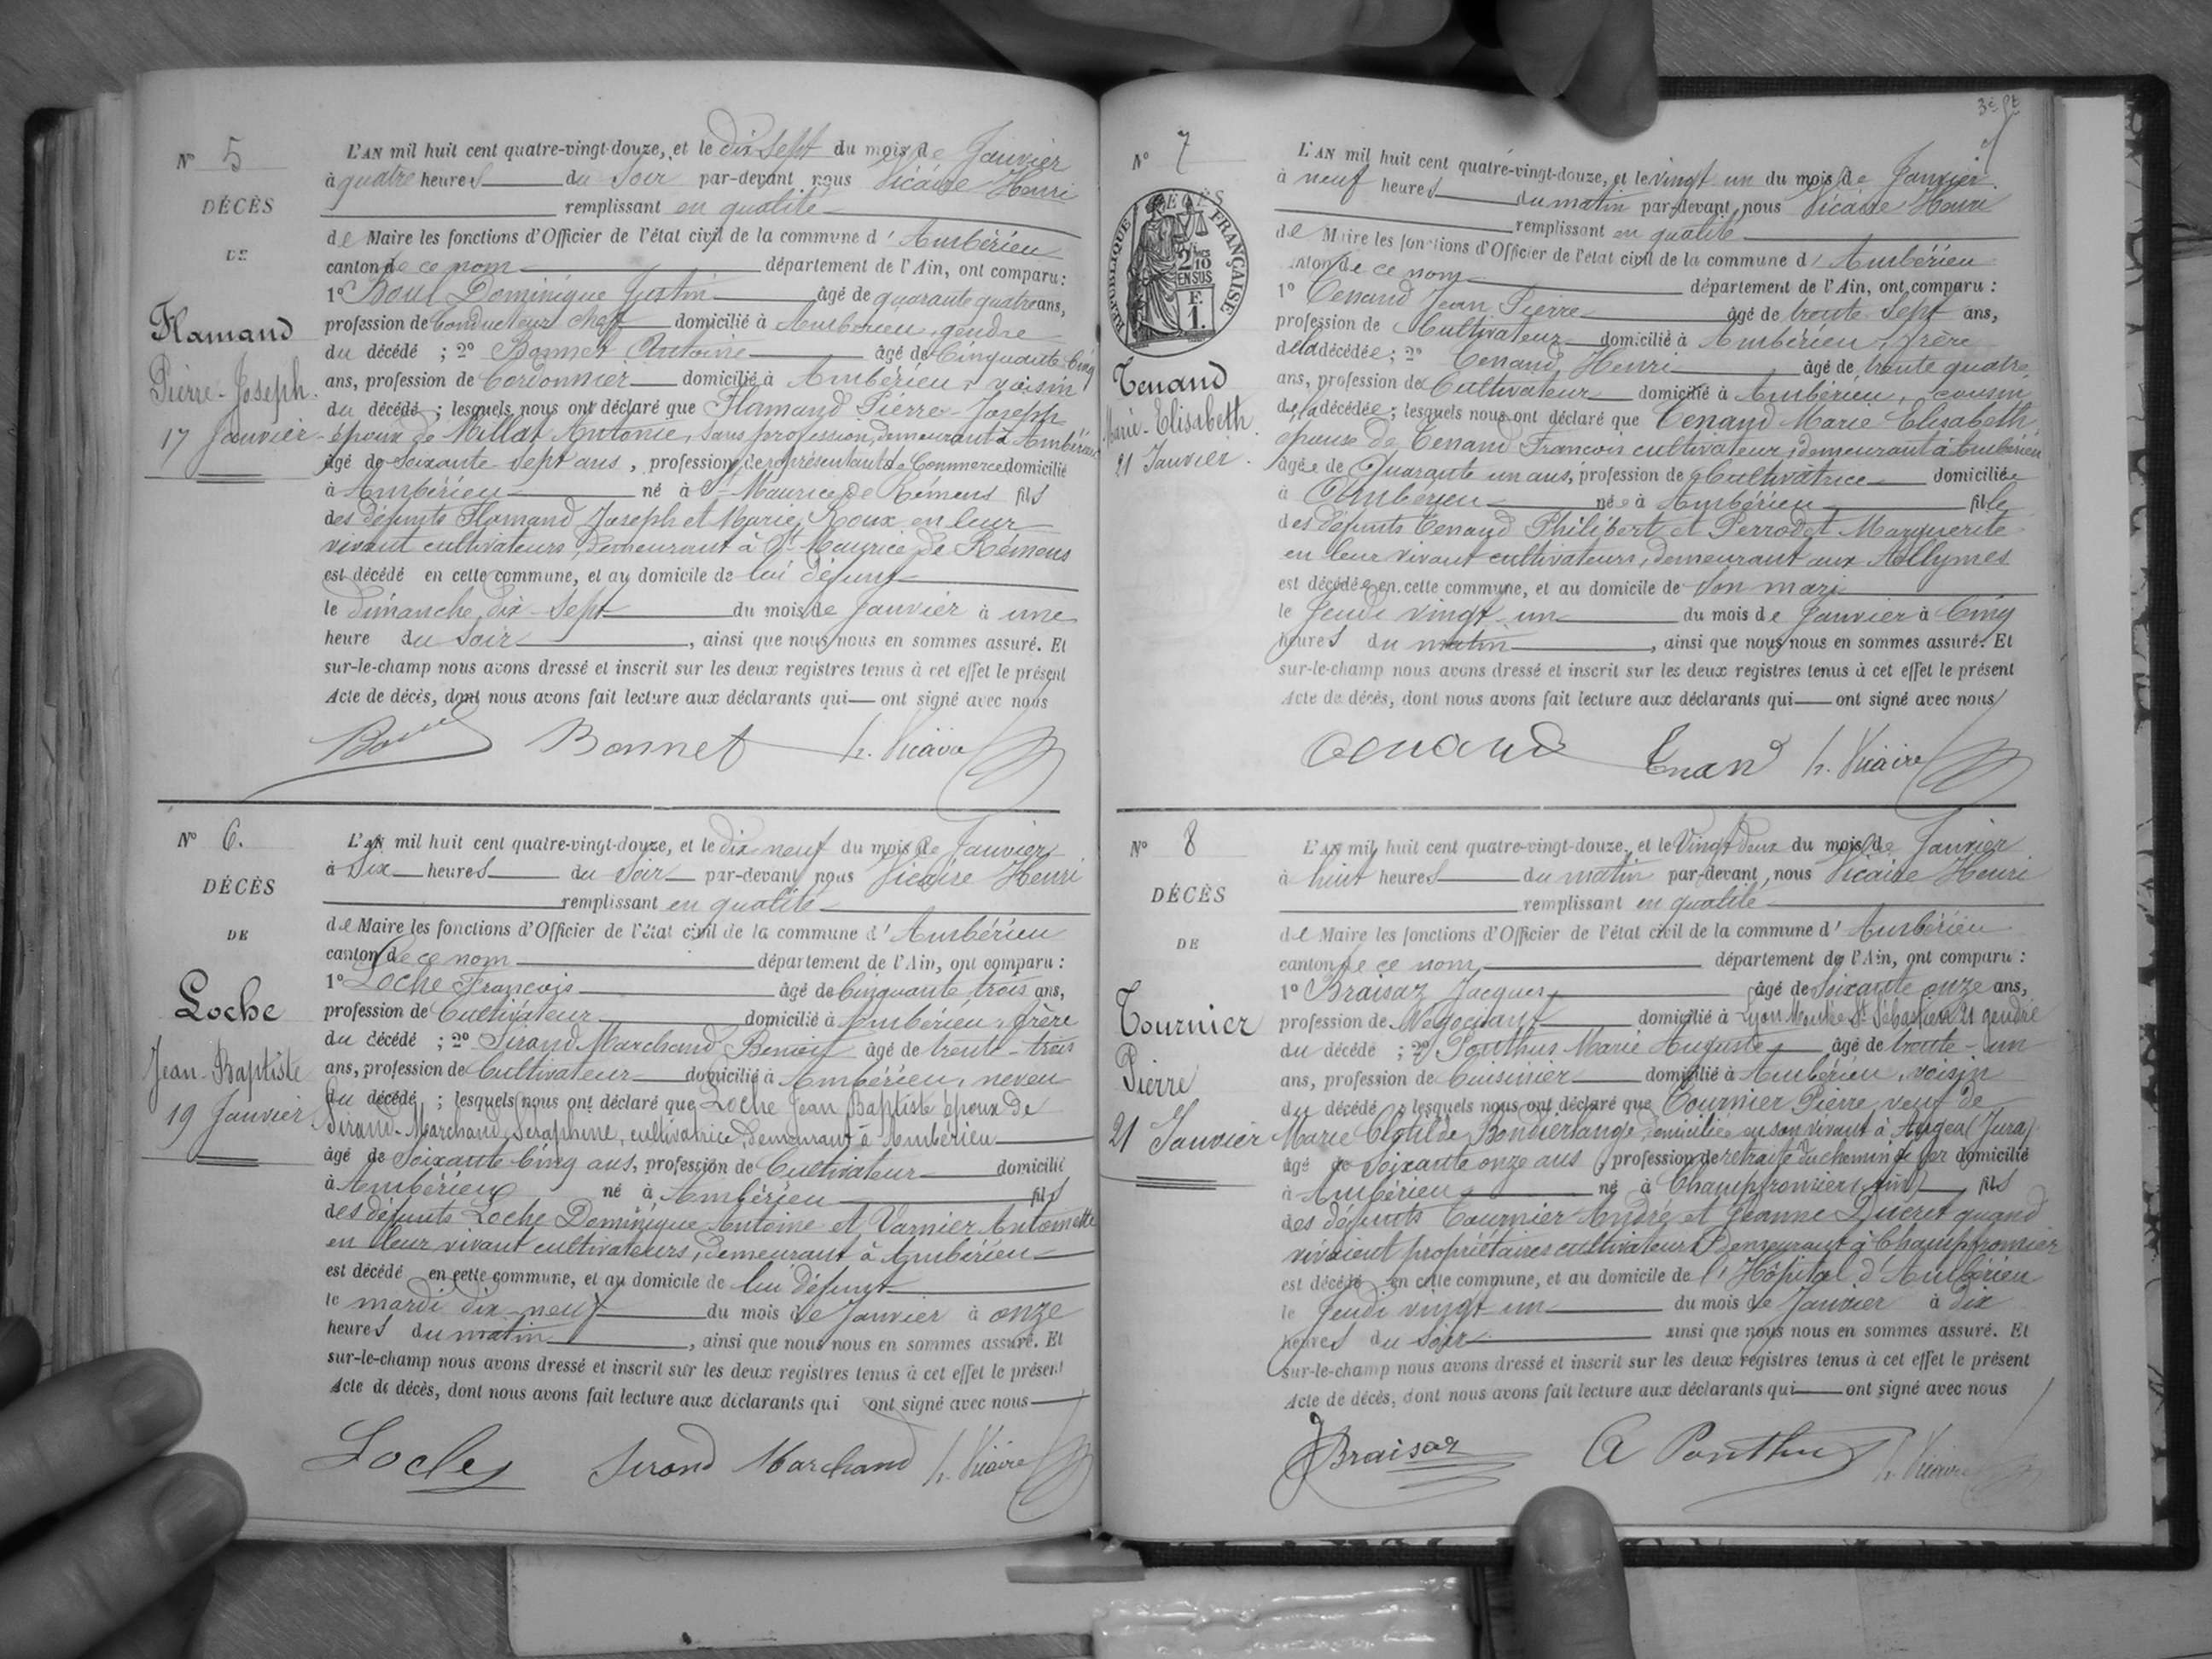 N° 5
DÉCÈS
DE
Flamand
Pierre-Joseph.
17 Janvier
L'AN mil huit cent quatre-vingt-douze, et le dix sept du mois de Janvier
à quatre heures du soir par-devant nous Vicaire Henri
remplissant en qualité
de Maire les fonctions d'Officier de l'état civil de la commune d'Ambérieu
canton de ce nom département de l'Ain, ont comparu :
1° Boul Dominique Justin âgé de quarante quatre ans,
profession de Conducteur chef domicilié à Ambérieu, gendre
du décédé ; 2° Bonnet Antoine âgé de Cinquante Cinq
ans, profession de Cordonnier domicilié à Ambérieu, voisin
du décédé ; lesquels nous ont déclaré que Flamand Pierre-Joseph
époux de Millat Antonie, sans profession, demeurant à Ambérieu
âgé de Soixante sept ans, profession de représentant de Commerce domicilié
à Ambérieu né à St Maurice de Rémens fils
des défunts Flamand Joseph et Marie Roux en leur
vivant cultivateurs, demeurant à St Maurice de Rémens
est décédé en cette commune, et au domicile de lui défunt
le dimanche dix-sept du mois de Janvier à une
heure du soir, ainsi que nous nous en sommes assuré. Et
sur-le-champ nous avons dressé et inscrit sur les deux registres tenus à cet effet le présent
Acte de décès, dont nous avons fait lecture aux déclarants qui ont signé avec nous
Bonnet h. Vicaire
N° 6.
DÉCÈS
DE
Loche
Jean-Baptiste
19 Janvier
L'AN mil huit cent quatre-vingt-douze, et le dix neuf du mois de Janvier
à Six heures du soir par-devant nous Vicaire Henri
remplissant en qualité
de Maire les fonctions d'Officier de l'état civil de la commune d'Ambérieu
canton de ce nom département de l'Ain, ont comparu :
1° Loche François âgé de Cinquante trois ans,
profession de Cultivateur domicilié à Ambérieu, frère
du décédé ; 2° Sirand Marchand Benoit âgé de trente-trois
ans, profession de Cultivateur domicilié à Ambérieu, neveu
du décédé ; lesquels nous ont déclaré que Loche Jean Baptiste époux de
Sirand-Marchand Séraphine, cultivatrice, demeurant à Ambérieu
âgé de Soixante Cinq ans, profession de Cultivateur domicilié
à Ambérieu né à Ambérieu fils
des défunts Loche Dominique Antoine et Varnier Antoinette
en leur vivant cultivateurs, demeurant à Ambérieu
est décédé en cette commune, et au domicile de lui défunt
le mardi dix-neuf du mois de Janvier à onze
heures du matin, ainsi que nous nous en sommes assuré. Et
sur-le-champ nous avons dressé et inscrit sur les deux registres tenus à cet effet le présent
Acte de décès, dont nous avons fait lecture aux déclarants qui ont signé avec nous
Loche Sirand Marchand h. Vicaire
N° 7
RÉPUBLIQUE FRANÇAISE
2/10
EN SUS
F.
1.
Tenand
Marie-Elisabeth
21 Janvier.
L'AN mil huit cent quatre-vingt-douze, et le vingt un du mois de Janvier
à neuf heures du matin par-devant nous Vicaire Henri
remplissant en qualité
de Maire les fonctions d'Officier de l'état civil de la commune d'Ambérieu
canton de ce nom département de l'Ain, ont comparu :
1° Tenand Jean Pierre âgé de trente sept ans,
profession de Cultivateur domicilié à Ambérieu, frère
de la décédée ; 2° Tenand Henri âgé de trente quatre
ans, profession de Cultivateur domicilié à Ambérieu, cousin
de la décédée ; lesquels nous ont déclaré que Tenand Marie Elisabeth
épouse de Tenand François cultivateur, demeurant à Ambérieu
âgée de Quarante un ans, profession de Cultivatrice domiciliée
à Ambérieu née à Ambérieu fille
des défunts Tenand Philibert et Perrodet Marguerite
en leur vivant cultivateurs, demeurant aux Allymes
est décédée en cette commune, et au domicile de son mari
le Jeudi vingt un du mois de Janvier à Cinq
heures du matin, ainsi que nous nous en sommes assuré. Et
sur-le-champ nous avons dressé et inscrit sur les deux registres tenus à cet effet le présent
Acte de décès, dont nous avons fait lecture aux déclarants qui ont signé avec nous
Tenand h. Vicaire
N° 8
DÉCÈS
DE
Tournier
Pierre
21 Janvier
L'AN mil huit cent quatre-vingt-douze, et le Vingt deux du mois de Janvier
à huit heures du matin par-devant nous Vicaire Henri
remplissant en qualité
de Maire les fonctions d'Officier de l'état civil de la commune d'Ambérieu
canton de ce nom département de l'Ain, ont comparu :
1° Braisaz Jacques âgé de Soixante onze ans,
profession de Négociant domicilié à Lyon Montée St Sébastien 21 gendre
du décédé ; 2° Ponthus Marie Auguste âgé de trente-un
ans, profession de Cuisinier domicilié à Ambérieu, voisin
du décédé ; lesquels nous ont déclaré que Tournier Pierre veuf de
Marie Clotilde Bondierlange, domiciliée en son vivant à Augea (Jura)
âgé de Soixante onze ans, profession de retraité du chemin de fer domicilié
à Ambérieu né à Champfromier (Ain) fils
des défunts Tournier André et Jeanne Ducret quand
vivaient propriétaires cultivateurs demeurant à Champfromier
est décédé en cette commune, et au domicile de l'Hôpital d'Ambérieu
le Jeudi vingt un du mois de Janvier à dix
heures du soir ainsi que nous nous en sommes assuré. Et
sur-le-champ nous avons dressé et inscrit sur les deux registres tenus à cet effet le présent
Acte de décès, dont nous avons fait lecture aux déclarants qui ont signé avec nous
JBraisaz A Ponthus h. Vicaire